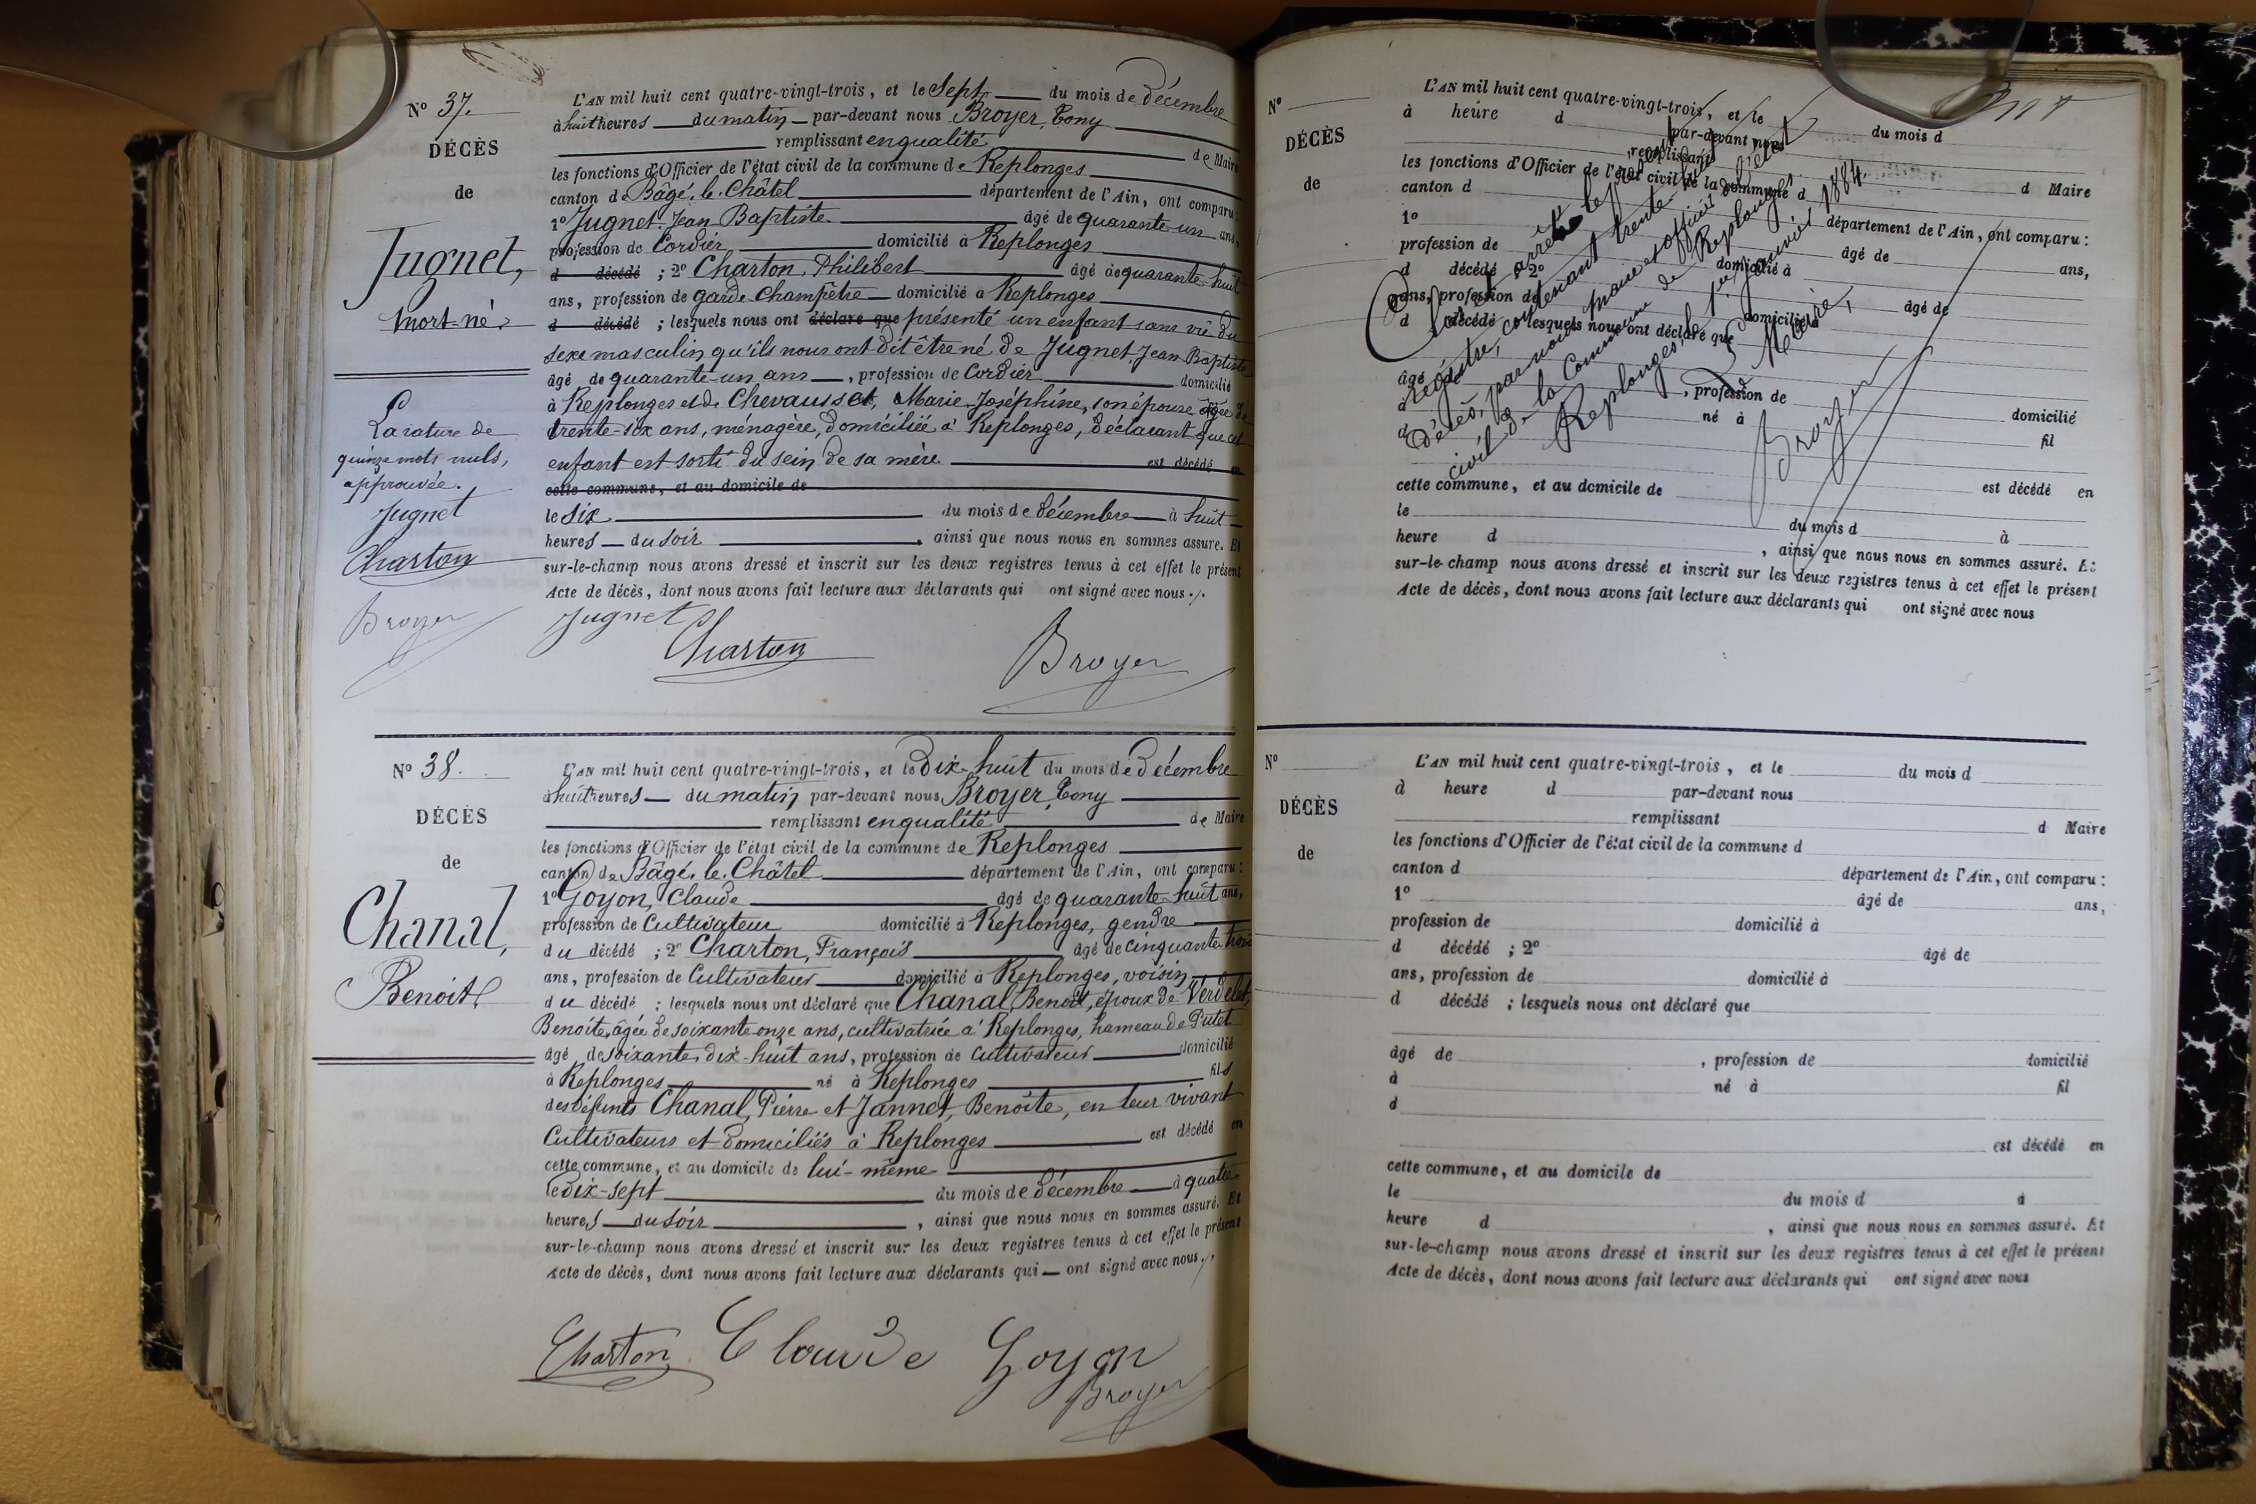 N° 37.
DÉCÈS
de
Jugnet,
Mort-né
La rature de
quinze mots nuls,
approuvée.
Jugnet
Charton
Broyer
L'AN mil huit cent quatre-vingt-trois, et le Sept du mois de Décembre
à huit heures du matin par-devant nous Broyer, Tony
remplissant en qualité de Maire
les fonctions d'Officier de l'état civil de la commune de Replonges
canton de Bâgé-le-Châtel département de l'Ain, ont comparu :
1° Jugnet, Jean Baptiste âgé de quarante-un ans,
profession de Cordier domicilié à Replonges
d décédé ; 2° Charton, Philibert âgé de quarante-huit
ans, profession de garde-Champêtre domicilié à Replonges
d décédé ; lesquels nous ont déclaré que présenté un enfant sans vie du
sexe masculin qu'ils nous ont dit être né de Jugnet, Jean Baptiste
âgé de quarante-un ans, profession de Cordier domicilié
à Replonges et de Chevausset, Marie-Joséphine, son épouse âgée de
trente-six ans, ménagère, domiciliée à Replonges, déclarant que cet
enfant est sorti du sein de sa mère est décédé en
cette commune, et au domicile de
le six du mois de décembre à huit
heures du soir, ainsi que nous nous en sommes assuré. Et
sur-le-champ nous avons dressé et inscrit sur les deux registres tenus à cet effet le présent
Acte de décès, dont nous avons fait lecture aux déclarants qui ont signé avec nous ./.
Jugnet
Charton
Broyer
N° 38.
DÉCÈS
de
Chanal,
Benoit
L'AN mil huit cent quatre-vingt-trois, et le Dix-huit du mois de Décembre
à huit heures du matin par-devant nous Broyer, Tony
remplissant en qualité de Maire
les fonctions d'Officier de l'état civil de la commune de Replonges
canton de Bâgé-le-Châtel département de l'Ain, ont comparu :
1° Goyon, Claude âgé de quarante-huit ans,
profession de Cultivateur domicilié à Replonges, gendre
du décédé ; 2° Charton, François âgé de cinquante-trois
ans, profession de Cultivateur domicilié à Replonges, voisin
du décédé ; lesquels nous ont déclaré que Chanal, Benoit, époux de Verdelet,
Benoite, âgée de soixante-onze ans, cultivatrice à Replonges, hameau de Putet
âgé de soixante-dix-huit ans, profession de Cultivateur domicilié
à Replonges né à Replonges fils
des défunts Chanal, Pierre et Jannet, Benoite, en leur vivant
Cultivateurs et domiciliés à Replonges est décédé en
cette commune, et au domicile de lui-même
le dix-sept du mois de décembre à quatre
heures du soir, ainsi que nous nous en sommes assuré. Et
sur-le-champ nous avons dressé et inscrit sur les deux registres tenus à cet effet le présent
Acte de décès, dont nous avons fait lecture aux déclarants qui ont signé avec nous ./.
Charton Claude Goyon
Broyer
N°
DÉCÈS
de
L'AN mil huit cent quatre-vingt-trois, et le du mois d
à heure d par-devant nous
remplissant d Maire
les fonctions d'Officier de l'état civil de la commune d
canton d département de l'Ain, ont comparu :
1° âgé de ans,
profession de domicilié à
d décédé ; 2° âgé de
ans, profession de domicilié à
d décédé ; lesquels nous ont déclaré que
âgé de, profession de domicilié
à né à fil
d
est décédé en
cette commune, et au domicile de
le du mois d à
heure d, ainsi que nous nous en sommes assuré. Et
sur-le-champ nous avons dressé et inscrit sur les deux registres tenus à cet effet le présent
Acte de décès, dont nous avons fait lecture aux déclarants qui ont signé avec nous
Clos et arrêté le présent
registre, contenant trente-huit actes de
Décès, par nous Maire et officier de l'état
civil de la Commune de Replonges.
Replonges, le 1er janvier 1884.
Le Maire,
Broyer
N°
DÉCÈS
de
L'AN mil huit cent quatre-vingt-trois, et le du mois d
à heure d par-devant nous
remplissant d Maire
les fonctions d'Officier de l'état civil de la commune d
canton d département de l'Ain, ont comparu :
1° âgé de ans,
profession de domicilié à
d décédé ; 2° âgé de
ans, profession de domicilié à
d décédé ; lesquels nous ont déclaré que
âgé de, profession de domicilié
à né à fil
d
est décédé en
cette commune, et au domicile de
le du mois d à
heure d, ainsi que nous nous en sommes assuré. Et
sur-le-champ nous avons dressé et inscrit sur les deux registres tenus à cet effet le présent
Acte de décès, dont nous avons fait lecture aux déclarants qui ont signé avec nous